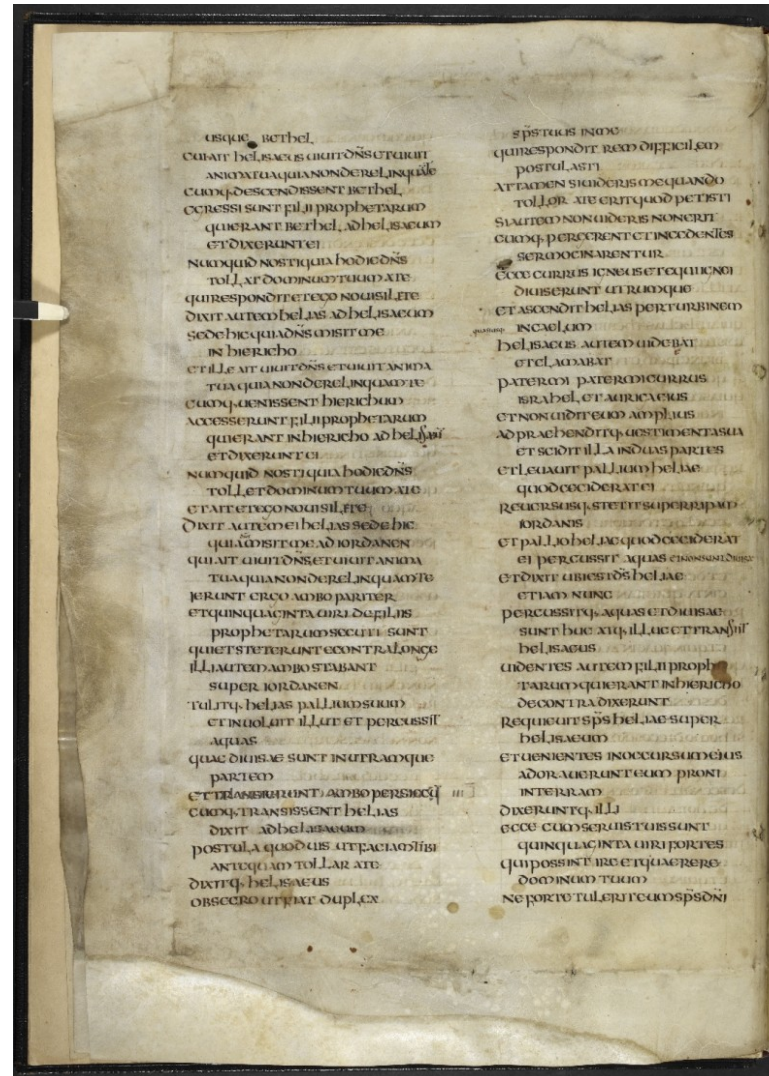 usque bethel
cui ait helisaeus uiuit dn̄s et uiuit
anima tua quia non derelinquā te
cumq· descendissent bethel
egressi sunt filii prophetarum
qui erant bethel ad helisaeum
et dixerunt ei
numquid nosti quia hodie dn̄s
tollat dominum tuum a te
qui respondit et ego noui silete
dixit autem helias ad helisaeum
sede hic quia dn̄s misit me
in hiericho
et ille ait uiuit dn̄s et uiuit anima
tua quia non derelinquam te
cumq· uenissent hierichum
accesserunt filii prophetarum
qui erant in hiericho ad helisaeū
et dixerunt ei
numquid nosti quia hodie dn̄s
tollet dominum tuum a te
et ait et ego noui silete
dixit autem ei helias sede hic
quia misit me ad iordanen
qui ait uiuit dn̄s et uiuit anima
tua quia non derelinquam te
ierunt ergo ambo pariter
et quinquaginta uiri de filiis
prophetarum secuti sunt
qui et steterunt e contra longe
illi autem ambo stabant
super iordanen
tulitq· helias pallium suum
et inuoluit illut et percussit
aquas
quae diuisae sunt in utramque
partem
et transierunt ambo per siccū
cumq· transissent helias
dixit ad helisaeum
postula quod uis ut faciam tibi
antequam tollar a te
dixitq· helisaeus
obsecro ut fiat duplex
sp̄s tuus in me
qui respondit rem difficilem
postulasti
attamen si uideris me quando
tollor a te erit quod petisti
si autem non uideris non erit
cumq· pergerent et incedentes
sermocinarentur
ecce currus igneus et equi ignei
diuiserunt utrumque
et ascendit helias per turbinem
in caelum
helisaeus autem uidebat
et clamabat
pater mi pater mi currus
israhel et auriga eius
et non uidit eum amplius
adpraehenditq· uestimenta sua
et scidit illa in duas partes
et leuauit pallium heliae
quod ceciderat ei
reuersusq· stetit super ripam
iordanis
et pallio heliae quod ceciderat
ei percussit aquas et non sunt diuisae
et dixit ubi est d̄s heliae
etiam nunc
percussitq· aquas et diuisae
sunt huc atq· illuc et transiit
helisaeus
uidentes autem filii prophe
tarum qui erant in hiericho
de contra dixerunt
requieuit sp̄s heliae super
helisaeum
et uenientes in occursum eius
adorauerunt eum proni
in terram
dixeruntq· illi
ecce cum seruis tuis sunt
quinquaginta uiri fortes
qui possint ire et quaerere
dominum tuum
ne forte tulerit eum sp̄s dn̄i